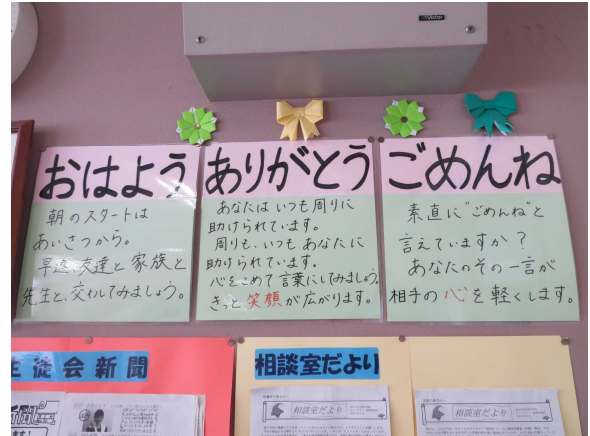 Victor
おはよう
朝のスタートは
あいさつから。
早速、友達と家族と
先生と、交わしてみましょう。
ありがとう
あなたはいつも周りに
助けられています。
周りも、いつもあなたに
助けられています。
心をこめて言葉にしてみましょう。
きっと笑顔が広がります。
ごめんね
素直に"ごめんね"と
言えていますか？
あなたのその一言が
相手の心を軽くします。
生徒会新聞
相談室だより
相談室だより
相談室だより